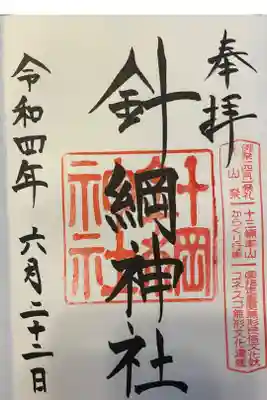 奉拝
針綱神社
令和四年 六月二十二日
十三輌車山
からくり行事
ユネスコ無形文化遺産